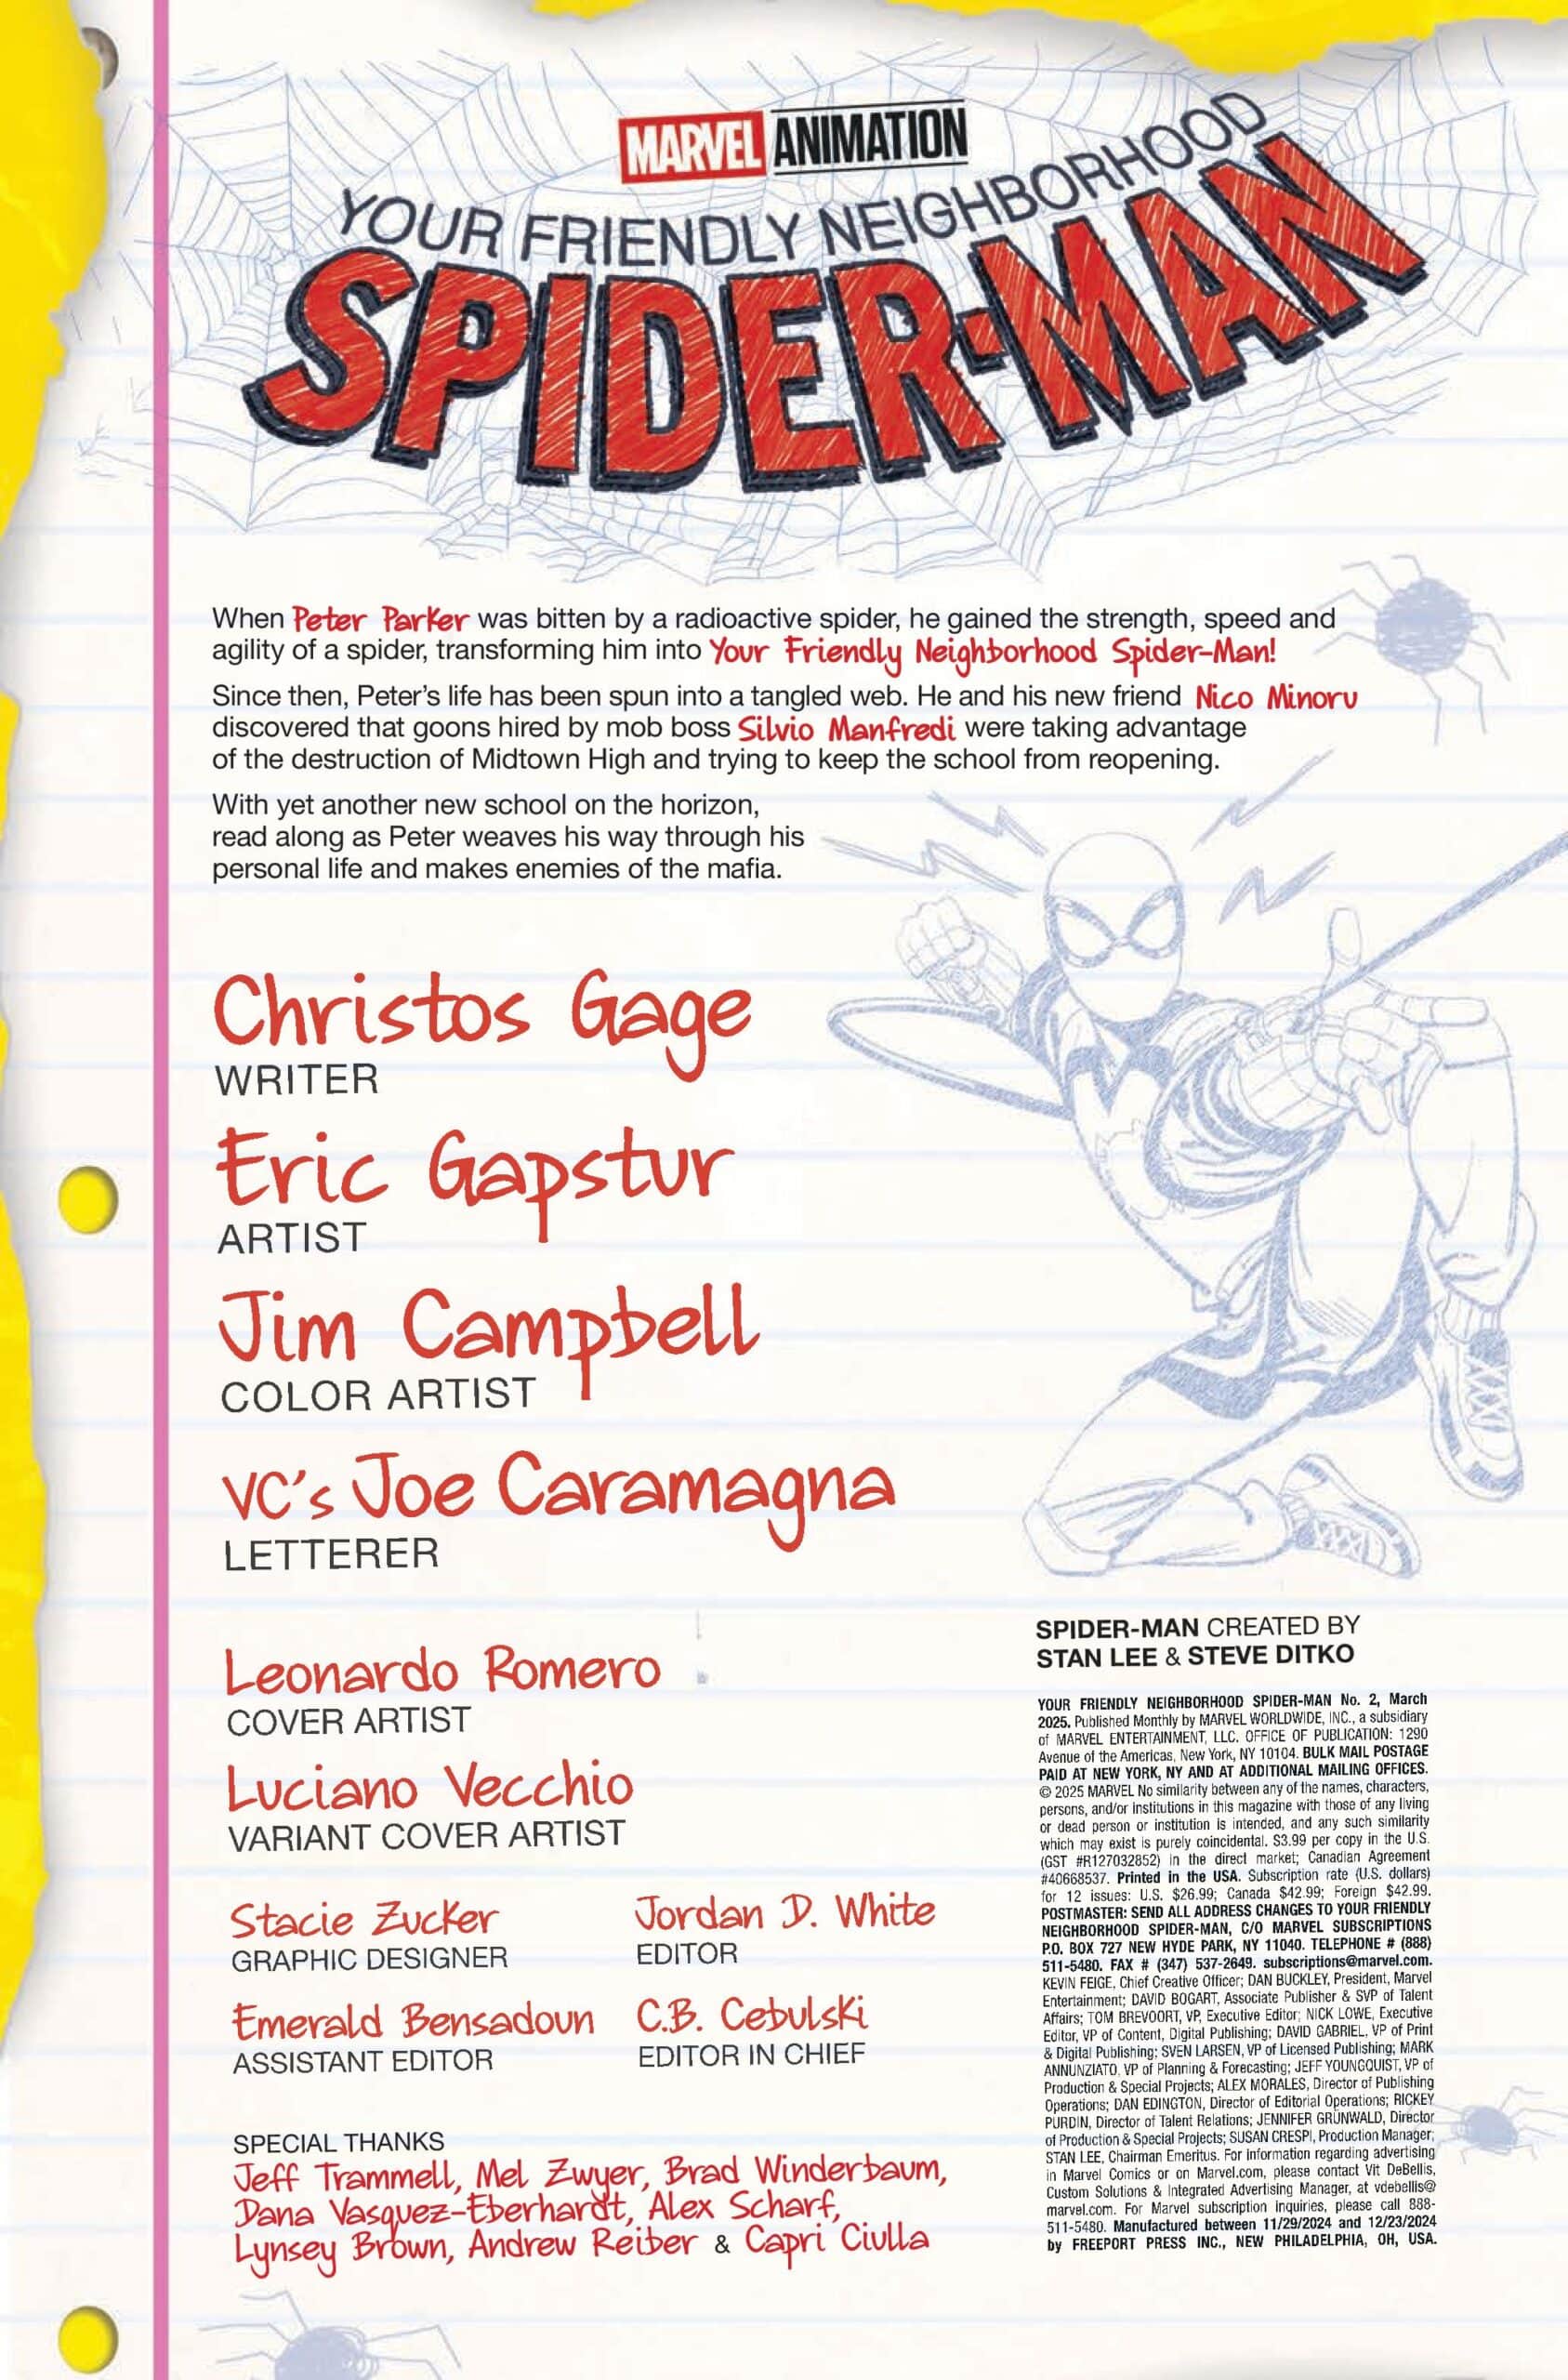 MARVEL ANIMATION
YOUR FRIENDLY NEIGHBORHOOD
SPIDER-MAN
When Peter Parker was bitten by a radioactive spider, he gained the strength, speed and
agility of a spider, transforming him into Your Friendly Neighborhood Spider-Man!
Since then, Peter's life has been spun into a tangled web. He and his new friend Nico Minoru
discovered that goons hired by mob boss Silvio Manfredi were taking advantage
of the destruction of Midtown High and trying to keep the school from reopening.
With yet another new school on the horizon,
read along as Peter weaves his way through his
personal life and makes enemies of the mafia.
Christos Gage
WRITER
Eric Gapstur
ARTIST
Jim Campbell
COLOR ARTIST
VC's Joe Caramagna
LETTERER
Leonardo Romero
COVER ARTIST
Luciano Vecchio
VARIANT COVER ARTIST
Stacie Zucker
GRAPHIC DESIGNER
Jordan D. White
EDITOR
Emerald Bensadoun
ASSISTANT EDITOR
C.B. Cebulski
EDITOR IN CHIEF
SPECIAL THANKS
Jeff Trammell, Mel Zwyer, Brad Winderbaum,
Dana Vasquez-Eberhardt, Alex Scharf,
Lynsey Brown, Andrew Reiber & Capri Ciulla
SPIDER-MAN CREATED BY
STAN LEE & STEVE DITKO
YOUR FRIENDLY NEIGHBORHOOD SPIDER-MAN No. 2, March
2025. Published Monthly by MARVEL WORLDWIDE, INC., a subsidiary
of MARVEL ENTERTAINMENT, LLC. OFFICE OF PUBLICATION: 1290
Avenue of the Americas, New York, NY 10104. BULK MAIL POSTAGE
PAID AT NEW YORK, NY AND AT ADDITIONAL MAILING OFFICES.
© 2025 MARVEL No similarity between any of the names, characters,
persons, and/or institutions in this magazine with those of any living
or dead person or institution is intended, and any such similarity
which may exist is purely coincidental. $3.99 per copy in the U.S.
(GST #R127032852) in the direct market; Canadian Agreement
#40668537. Printed in the USA. Subscription rate (U.S. dollars)
for 12 issues: U.S. $26.99; Canada $42.99; Foreign $42.99.
POSTMASTER: SEND ALL ADDRESS CHANGES TO YOUR FRIENDLY
NEIGHBORHOOD SPIDER-MAN, C/O MARVEL SUBSCRIPTIONS
P.O. BOX 727 NEW HYDE PARK, NY 11040. TELEPHONE # (888)
511-5480. FAX # (347) 537-2649. subscriptions@marvel.com.
KEVIN FEIGE, Chief Creative Officer; DAN BUCKLEY, President, Marvel
Entertainment; DAVID BOGART, Associate Publisher & SVP of Talent
Affairs; TOM BREVOORT, VP, Executive Editor; NICK LOWE, Executive
Editor, VP of Content, Digital Publishing; DAVID GABRIEL, VP of Print
& Digital Publishing; SVEN LARSEN, VP of Licensed Publishing; MARK
ANNUNZIATO, VP of Planning & Forecasting; JEFF YOUNGQUIST, VP of
Production & Special Projects; ALEX MORALES, Director of Publishing
Operations; DAN EDINGTON, Director of Editorial Operations; RICKEY
PURDIN, Director of Talent Relations; JENNIFER GRÜNWALD, Director
of Production & Special Projects; SUSAN CRESPI, Production Manager;
STAN LEE, Chairman Emeritus. For information regarding advertising
in Marvel Comics or on Marvel.com, please contact Vit DeBellis,
Custom Solutions & Integrated Advertising Manager, at vdebellis@
marvel.com. For Marvel subscription inquiries, please call 888-
511-5480. Manufactured between 11/29/2024 and 12/23/2024
by FREEPORT PRESS INC., NEW PHILADELPHIA, OH, USA.